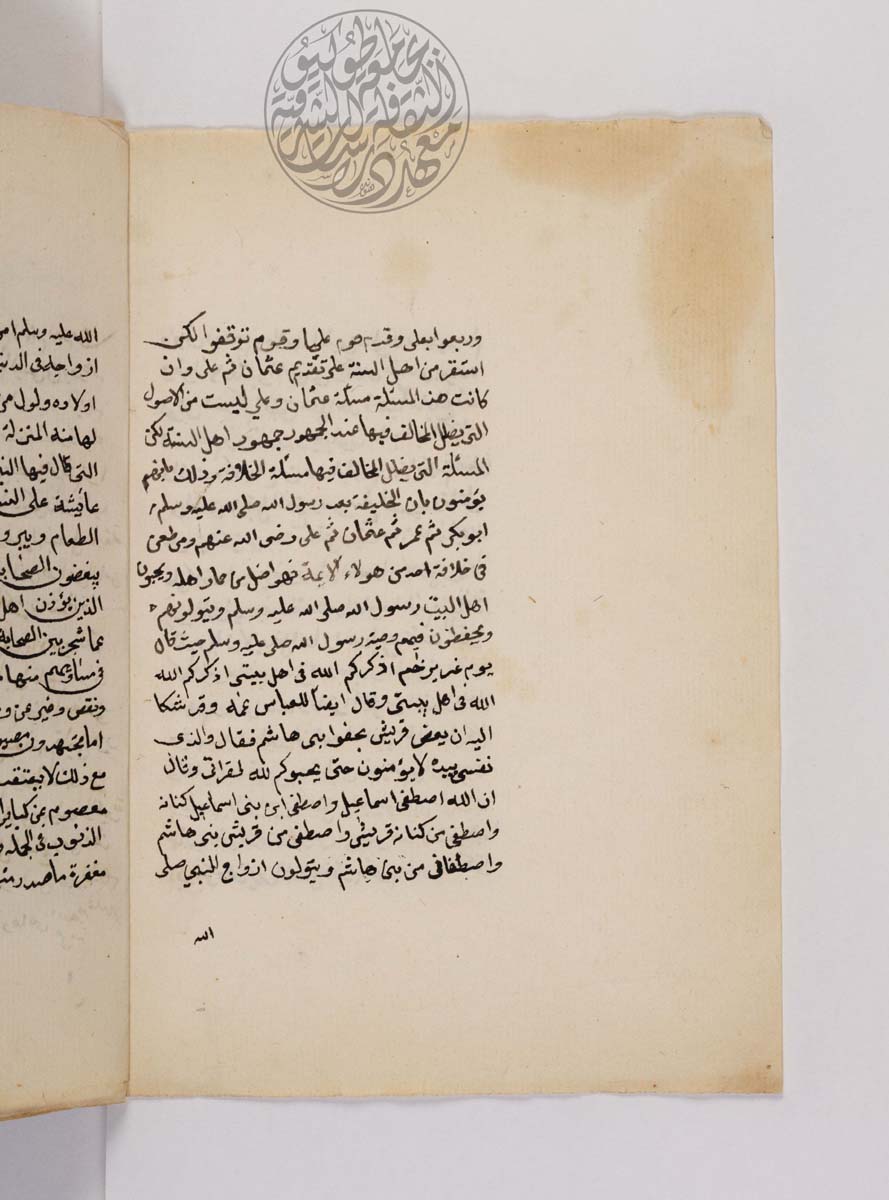 وربعوا بعلى وقدم قوم عليا وقوم توقفوا لكن
استقر من اهل السنة على تقديم عثمان ثم على وان
كانت هذه المسئلة مسئلة عثمان وعلي ليست من الاصول
التى يضلل المخالف فيها عند الجمهور جمهور اهل السنة لكن
المسئلة التى يضلل المخالف فيها مسئلة الخلافة وذلك
يؤمنون بان الخليفة بعد رسول الله صلى الله عليه وسلم
ابو بكر ثم عمر ثم عثمان ثم على رضى الله عنهم ومن طعن
فى خلافة احد من هولاء الائمة فهو اضل من حمار اهله ويحبون
اهل البيت رسول الله صلى الله عليه وسلم ويتولونهم
ويحفظون فيهم وصية رسول الله صلى عليه وسلم حيث قال
يوم غدير خم اذكركم الله فى اهل بيتى اذكركم الله
الله فى اهل بيتى وقال ايضا للعباس عمه وقد شكا
اليه ان بعض قريش يجفوا بنى هاشم فقال والذى
نفسى بيده لا يؤمنون حتى يحبوكم لله لقرابتى وقال
ان الله اصطفى اسماعيل واصطفى من بنى اسماعيل كنانة
واصطفى من كنانة قريش واصطفى من قريش بنى هاشم
واصطفانى من بنى هاشم ويتولون ازواج النبي صلى
الله
الله عليه وسلم
ازواجه فى
اولاده واول من
لها منه المنزلة
التى قال فيها
عايشة على
الطعام
يبغضون الصحابة
الذين يؤذون اهل
عما شجر بين الصحابة
فى مساويهم منها
ونقص وغير عن
اما مجتهدون
مع ذلك لا يعتقد
معصوم عن كباير
الذنوب فى الجملة
مغفرة ما صدر
جامعة طوكيو
معهد الثقافة الشرقية